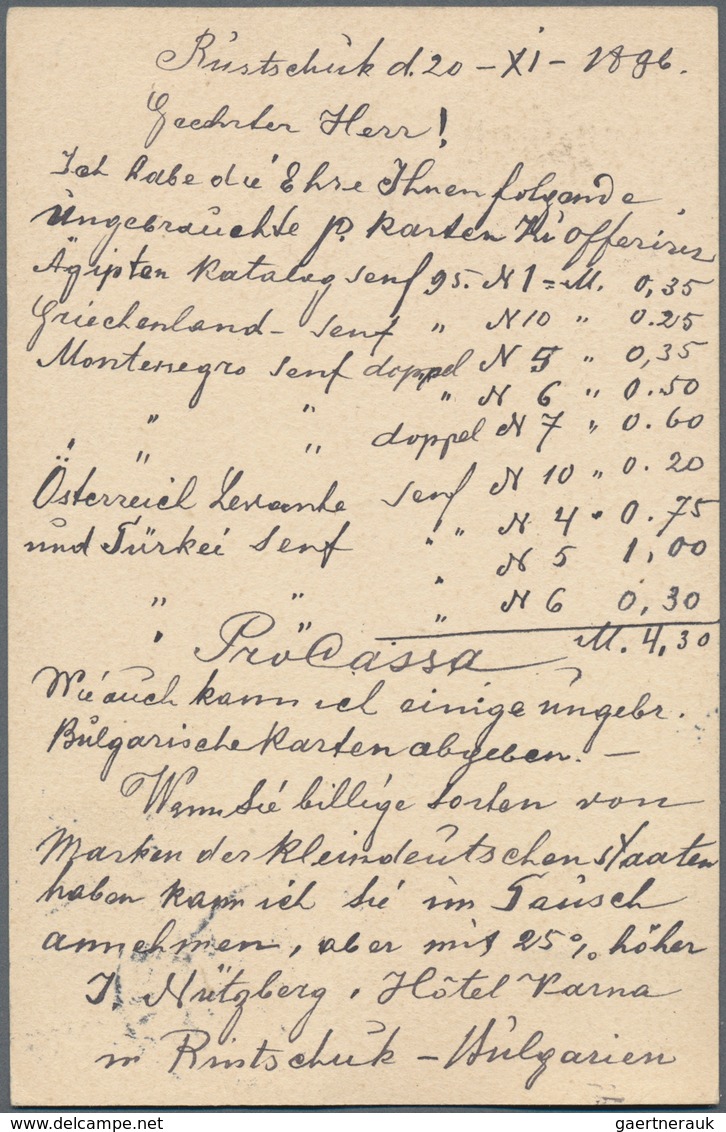 Rustschuk d. 20 – XI – 1896.
Geehrter Herr!
Ich habe die Ehre Ihnen folgende
ungebrauchte P. Karten zu offeriren
Ägipten Katalog Senf 95. N 1 = M. 0,35
Griechenland – Senf " N 10 " 0.25
Montenegro Senf doppel N 5 " 0,35
" " " N 6 " 0.50
" " doppel N 7 " 0.60
Österreich Levante Senf N 10 " 0.20
und Türkei Senf " " N 4 " 0.75
" N 5 1,00
" " " N 6 0,30
Pro Cassa M. 4,30
Wie auch kann ich einige ungebr.
Bulgarische Karten abgeben. –
Wenn Sie billige Sorten von
Marken der kleindeutschen Staaten
haben kann ich Sie im Tausch
annehmen, aber mit 25% höher
J. Nützberg, Hôtel Varna
in Rustschuk – Bulgarien
gaertnerauk